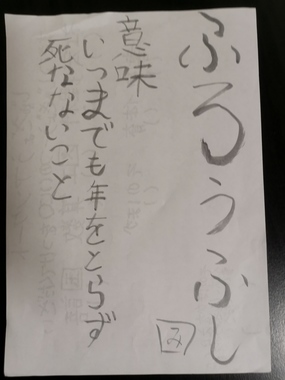 ふろうふし
意味
いつまでも年をとらず
死なないこと